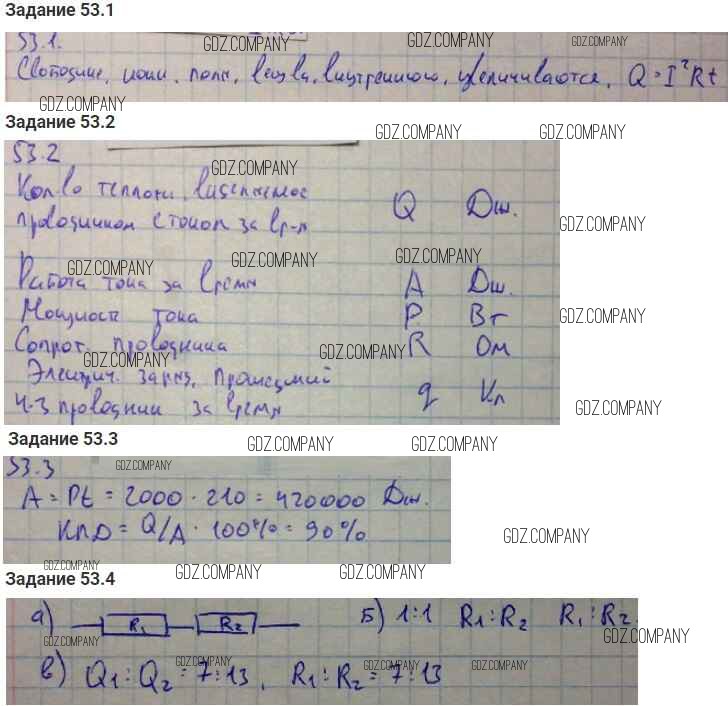 Задание 53.1
53.1. GDZ.COMPANY GDZ.COMPANY GDZ.COMPANY
Свободные, ионы, поля, вещва, внутреннюю, увеличиваются, Q = I²Rt
GDZ.COMPANY
Задание 53.2
GDZ.COMPANY GDZ.COMPANY
53.2
GDZ.COMPANY
Кол-во теплоты, выделяемое
проводником с током за вр-я Q Дж.
GDZ.COMPANY
GDZ.COMPANY GDZ.COMPANY GDZ.COMPANY
Работа тока за время A Дж.
Мощность тока P Вт
GDZ.COMPANY
Сопрот. проводника R Ом
GDZ.COMPANY GDZ.COMPANY
Электрич. заряд, прошедший
ч-з проводник за время q Кл
GDZ.COMPANY
Задание 53.3
GDZ.COMPANY GDZ.COMPANY
53.3 GDZ.COMPANY
A = Pt = 2000 · 210 = 420000 Дж.
КПД = Q/A · 100% = 90%
GDZ.COMPANY
GDZ.COMPANY GDZ.COMPANY GDZ.COMPANY
Задание 53.4
а) R₁ R₂ Б) 1:1 R₁:R₂ R₁:R₂
GDZ.COMPANY GDZ.COMPANY
в) Q₁:Q₂ = 7:13, R₁:R₂ = 7:13
GDZ.COMPANY GDZ.COMPANY GDZ.COMPANY